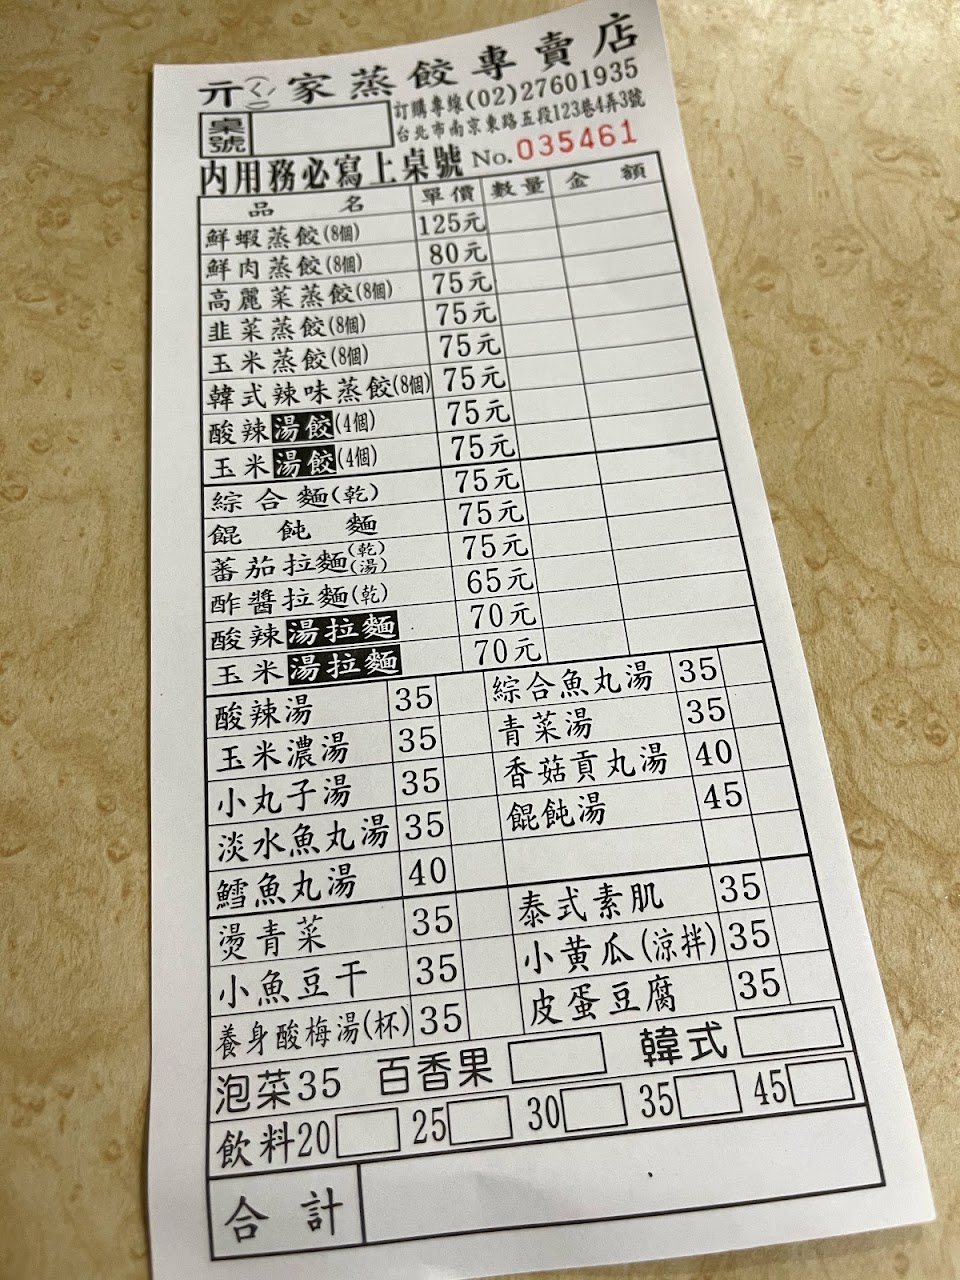 亓家蒸餃專賣店
(ㄑㄧˊ)
訂購專線(02)27601935
台北市南京東路五段123巷4弄3號
桌號
內用務必寫上桌號 No.035461
品名 單價 數量 金額
鮮蝦蒸餃(8個) 125元
鮮肉蒸餃(8個) 80元
高麗菜蒸餃(8個) 75元
韭菜蒸餃(8個) 75元
玉米蒸餃(8個) 75元
韓式辣味蒸餃(8個) 75元
酸辣湯餃(4個) 75元
玉米湯餃(4個) 75元
綜合麵(乾) 75元
餛飩麵 75元
蕃茄拉麵(乾)(湯) 75元
酢醬拉麵(乾) 65元
酸辣湯拉麵 70元
玉米湯拉麵 70元
酸辣湯 35 綜合魚丸湯 35
玉米濃湯 35 青菜湯 35
小丸子湯 35 香菇貢丸湯 40
淡水魚丸湯 35 餛飩湯 45
鱈魚丸湯 40
燙青菜 35 泰式素肌 35
小魚豆干 35 小黃瓜(涼拌) 35
養身酸梅湯(杯) 35 皮蛋豆腐 35
泡菜35 百香果 韓式
飲料20 25 30 35 45
合計